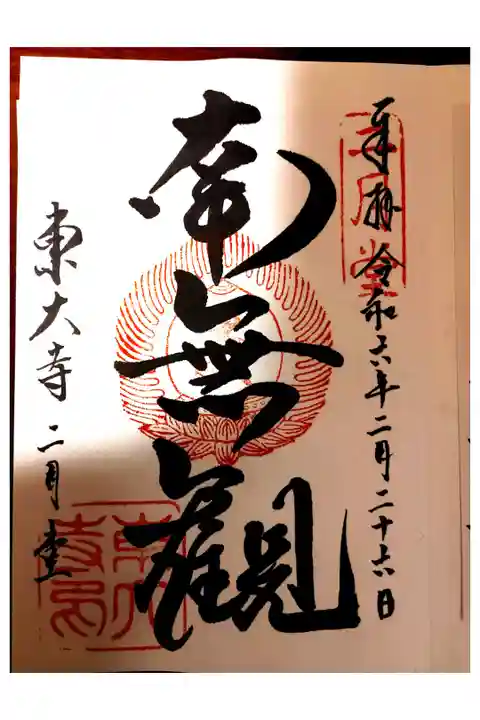 奉拝 令和六年二月二十六日
二月堂
南無観
東大寺 二月堂